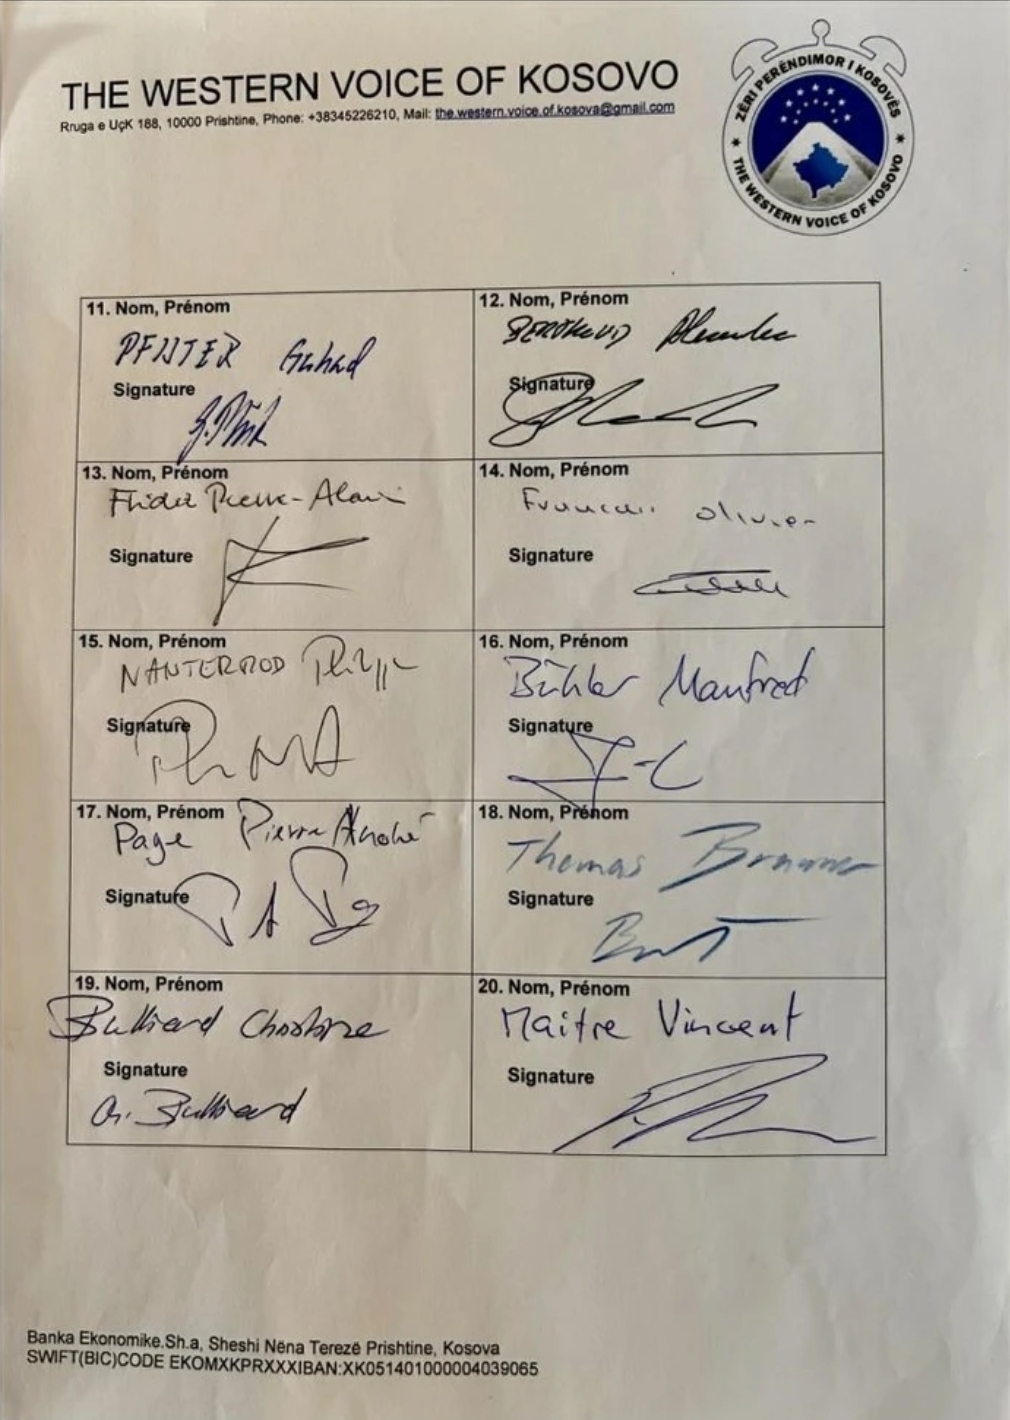 THE WESTERN VOICE OF KOSOVO
Rruga e UçK 188, 10000 Prishtine, Phone: +38345226210, Mail: the.western.voice.of.kosova@gmail.com
ZËRI PERËNDIMOR I KOSOVËS
THE WESTERN VOICE OF KOSOVO
11. Nom, Prénom
PFISTER Gerhard
Signature
12. Nom, Prénom
BERTHOUD Alexandre
Signature
13. Nom, Prénom
Fridez Pierre-Alain
Signature
14. Nom, Prénom
Français Olivier
Signature
15. Nom, Prénom
NANTERMOD Philippe
Signature
16. Nom, Prénom
Bühler Manfred
Signature
17. Nom, Prénom
Page Pierre André
Signature
18. Nom, Prénom
Thomas
Signature
19. Nom, Prénom
Bulliard Christine
Signature
C. Bulliard
20. Nom, Prénom
Maitre Vincent
Signature
Banka Ekonomike.Sh.a, Sheshi Nëna Terezë Prishtine, Kosova
SWIFT(BIC)CODE EKOMXKPRXXXIBAN:XK051401000004039065